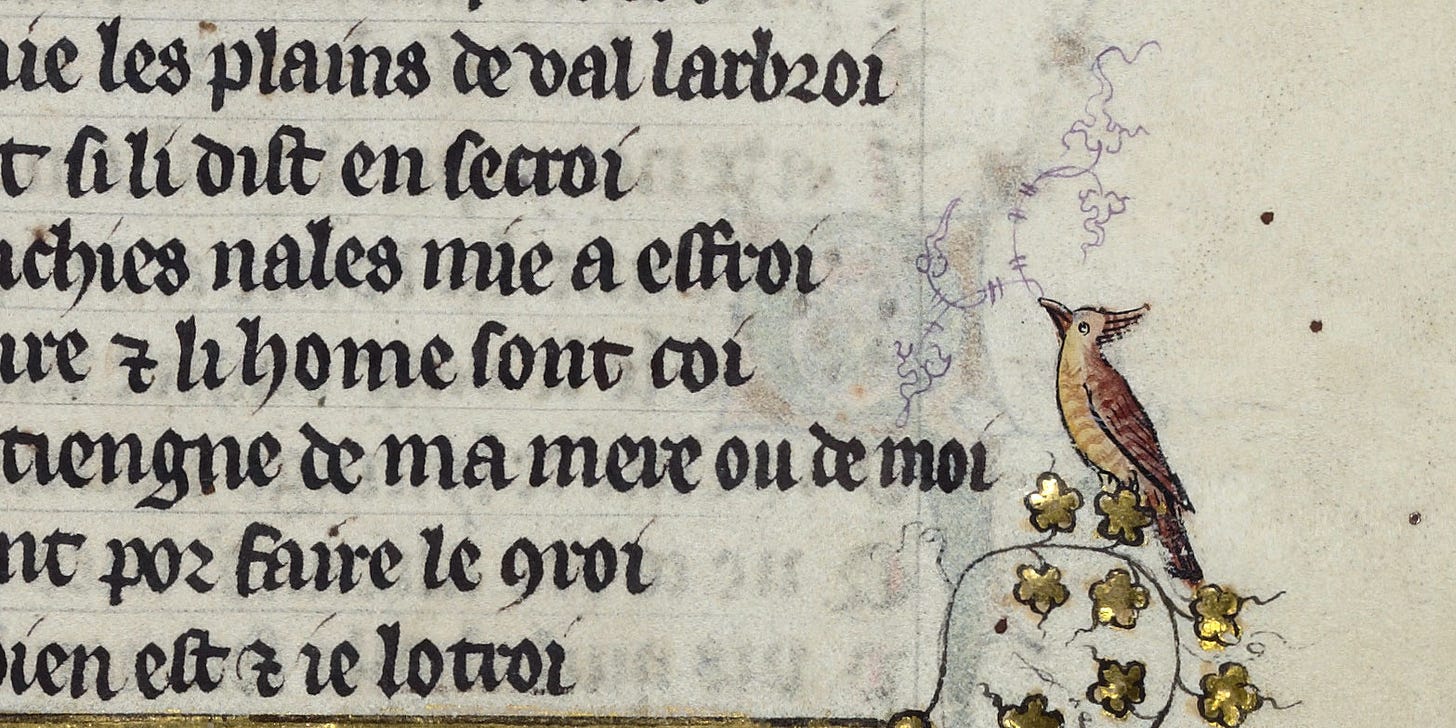 les plains de val larbroi
si li dist en secroi
nales mie a effroi
⁊ li home sont coi
tiengne de ma mere ou de moi
por faire le ꝯroi
bien est ⁊ ie lotroi